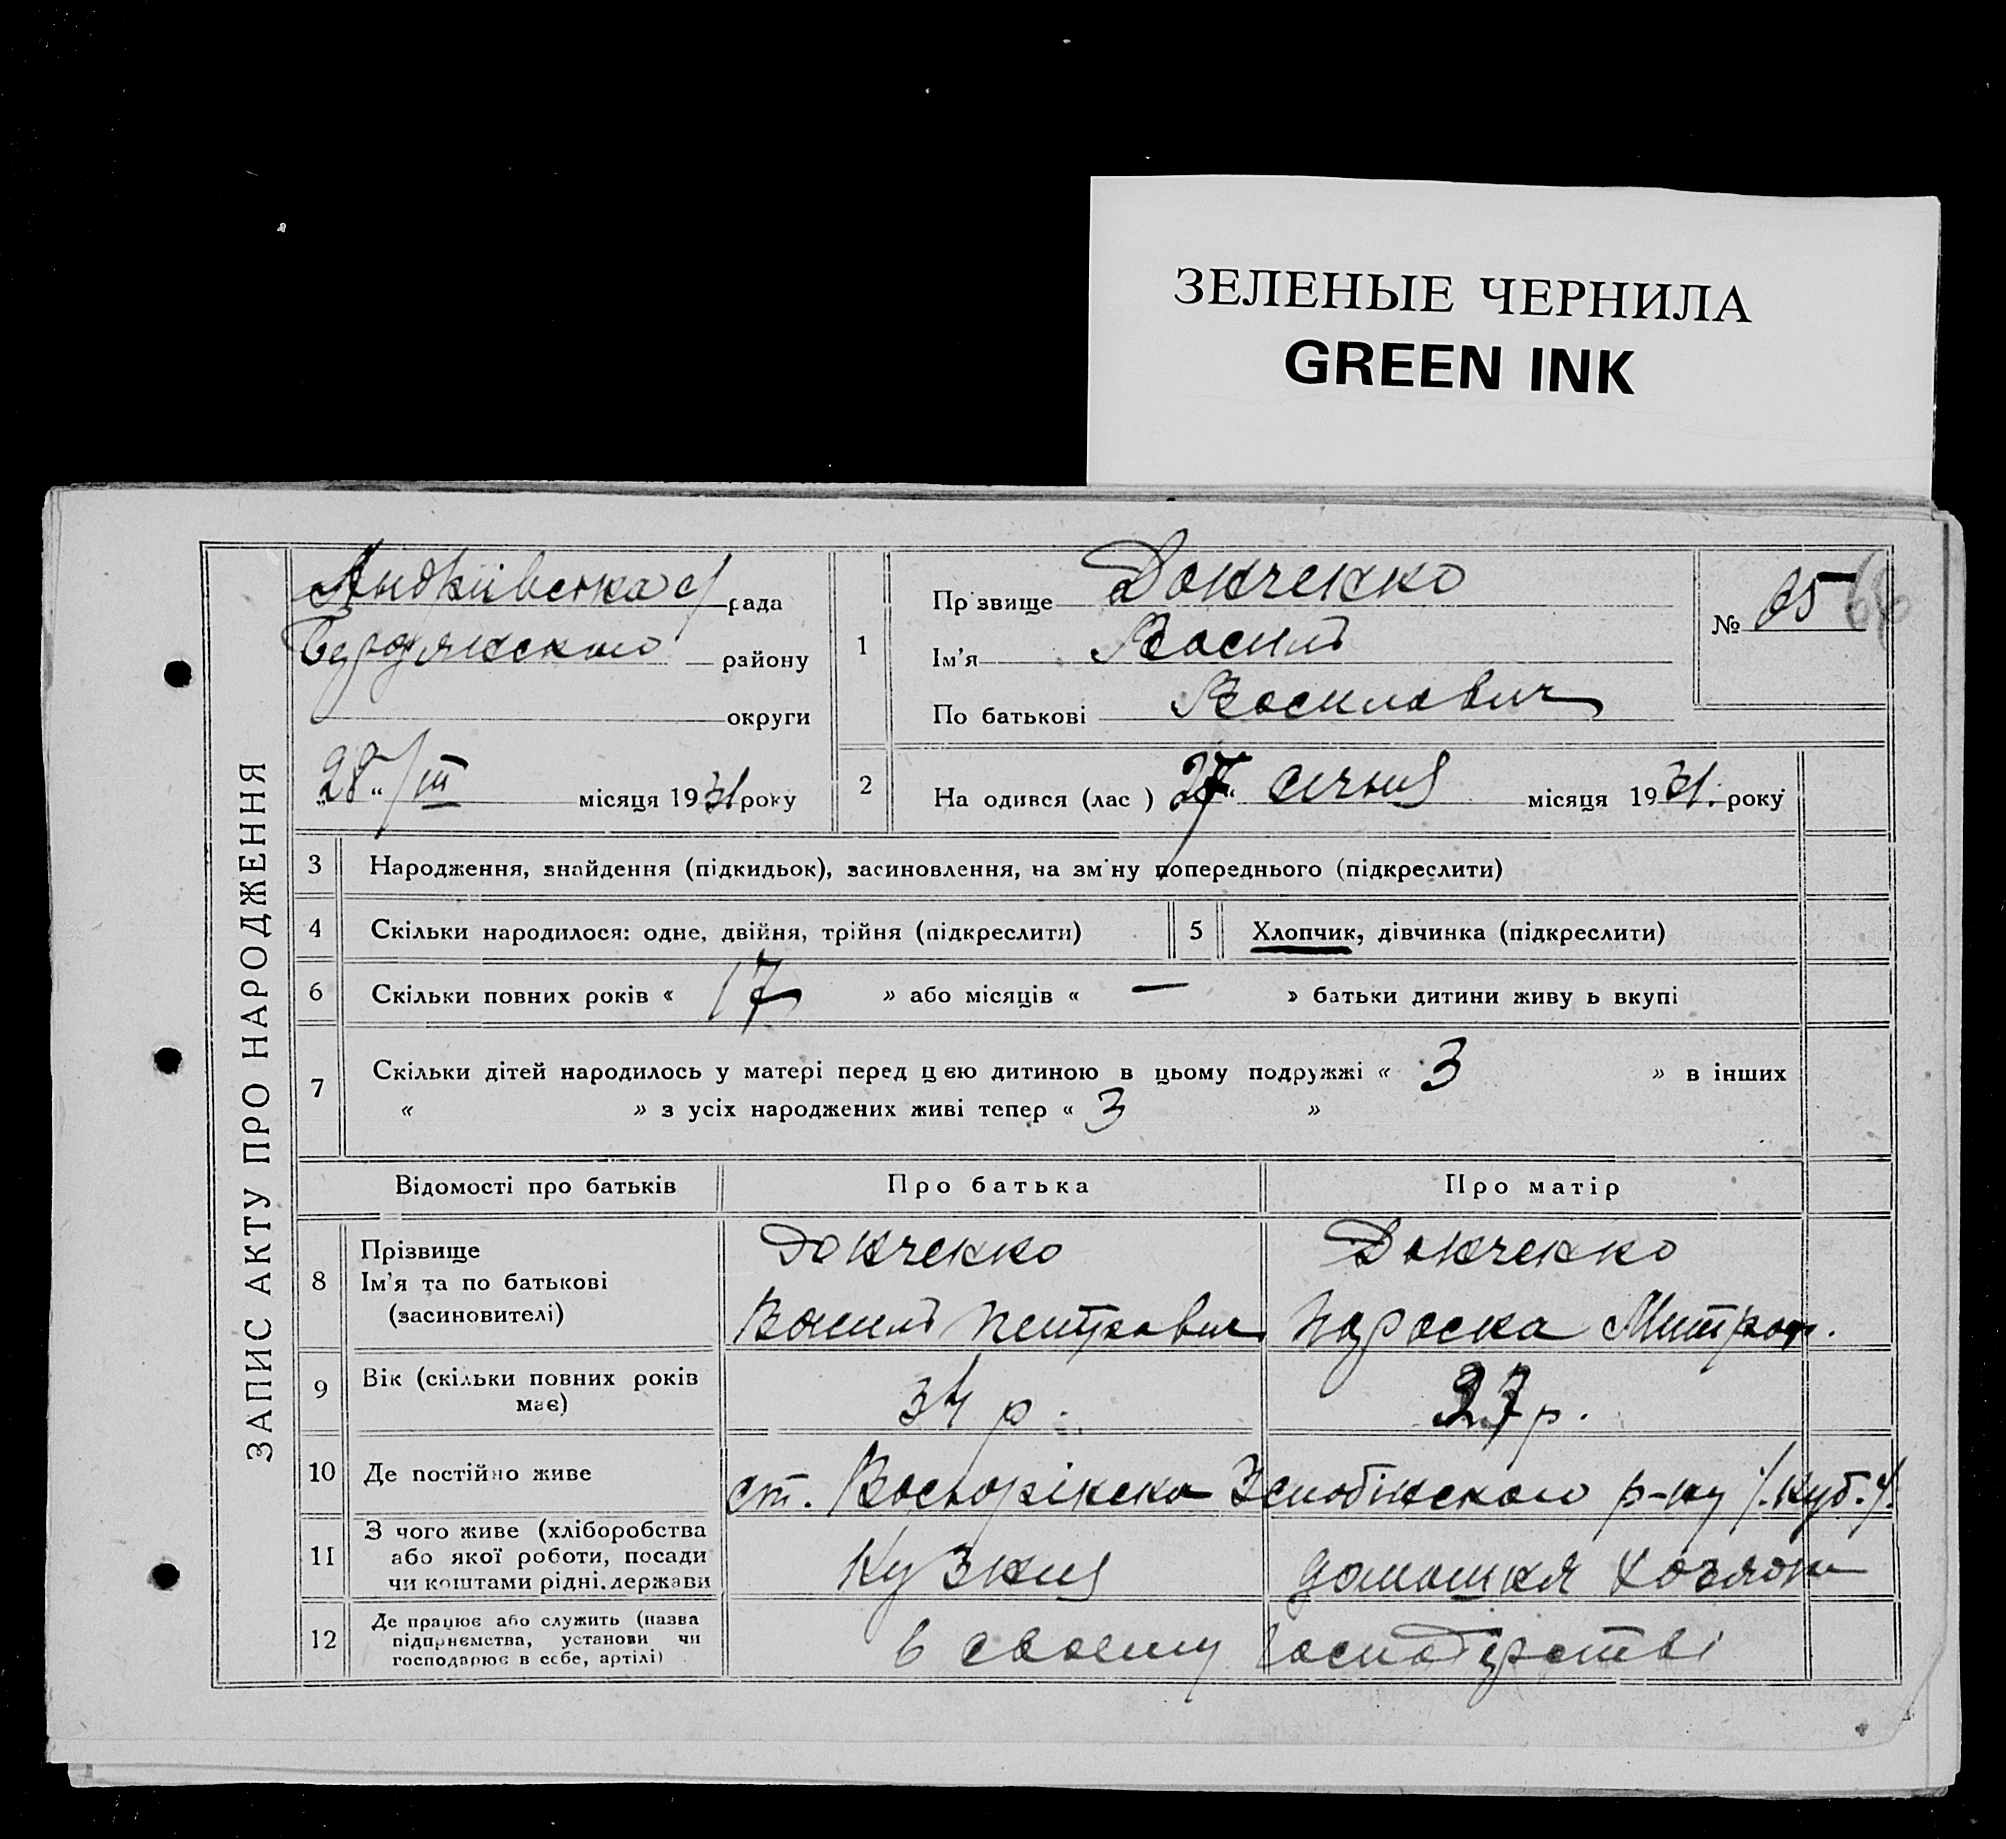 ЗЕЛЕНЫЕ ЧЕРНИЛА
GREEN INK
ЗАПИС АКТУ ПРО НАРОДЖЕННЯ
Андріївська с/рада
Бердянського району
округи
„28“ / III місяця 1931 року
1 Прізвище Донченко
Ім'я Василь
По батькові Василович
№ 65 66
2 На одився (лас ) 27“ січня місяця 1931. року
3 Народження, знайдення (підкидьок), засиновлення, на зміну попереднього (підкреслити)
4 Скільки народилося: одне, двійня, трійня (підкреслити)
5 Хлопчик, дівчинка (підкреслити)
6 Скільки повних років « 17 » або місяців « — » батьки дитини живу ь вкупі
7 Скільки дітей народилось у матері перед цею дитиною в цьому подружжі « 3 » в інших
« » з усіх народжених живі тепер « 3 »
Відомості про батьків Про батька Про матір
8 Прізвище
Ім'я та по батькові
(засиновителі)
Донченко
Василь Петрович
Донченко
Параска Митроф.
9 Вік (скільки повних років
має)
34 р. 37 р.
10 Де постійно живе ст. р-ну /.Куб./.
11 З чого живе (хліборобства
або якої роботи, посади
чи коштами рідні, держави
Кузня домашня хозяйн
12 Де працює або служить (назва
підприємства, установи чи
господарює в себе, артілі)
в своєму господарстві